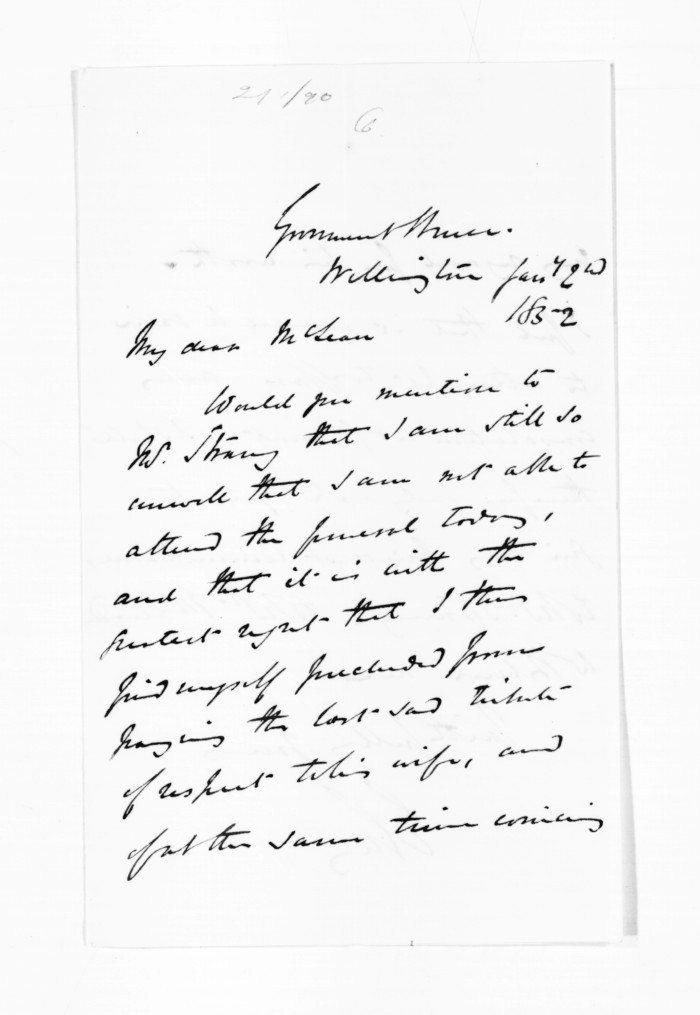 21/90
6
Government House.
Wellington Jany 2nd
1852
My dear McLean
Would you mention to
Mr. Strang that I am still so
unwell that I am not able to
attend the funeral today,
and that it is with the
greatest regret that I thus
find myself precluded from
paying the last sad tribute
of respect to his wife, and
of at the same time evincing